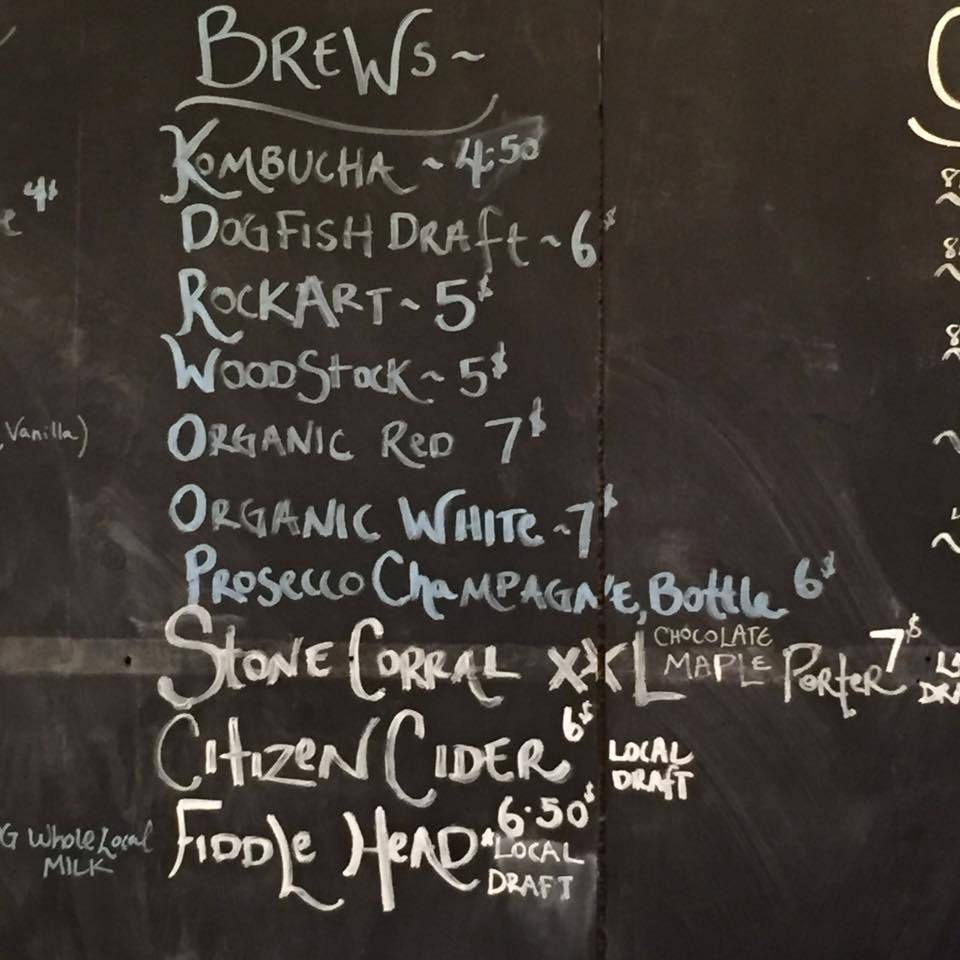 BREWS~
KOMBUCHA ~ 4.50
DOGFISH DRAft ~ 6$
ROCKART ~ 5$
WOODStOCK ~ 5$
ORGANIC ReD 7$
ORGANIC WHITe ~7$
PROSECCO ChAMPAGN'E, Bottle 6$
StONE CORRAL XXL CHOCOLATE MAPLE PORtER 7$
CItIZeN CIDER 6$ LOCAL DRAFT
FIDDLe HeAD* 6.50$ LOCAL DRAFT
4$
Vanilla)
G Whole Local
MILK